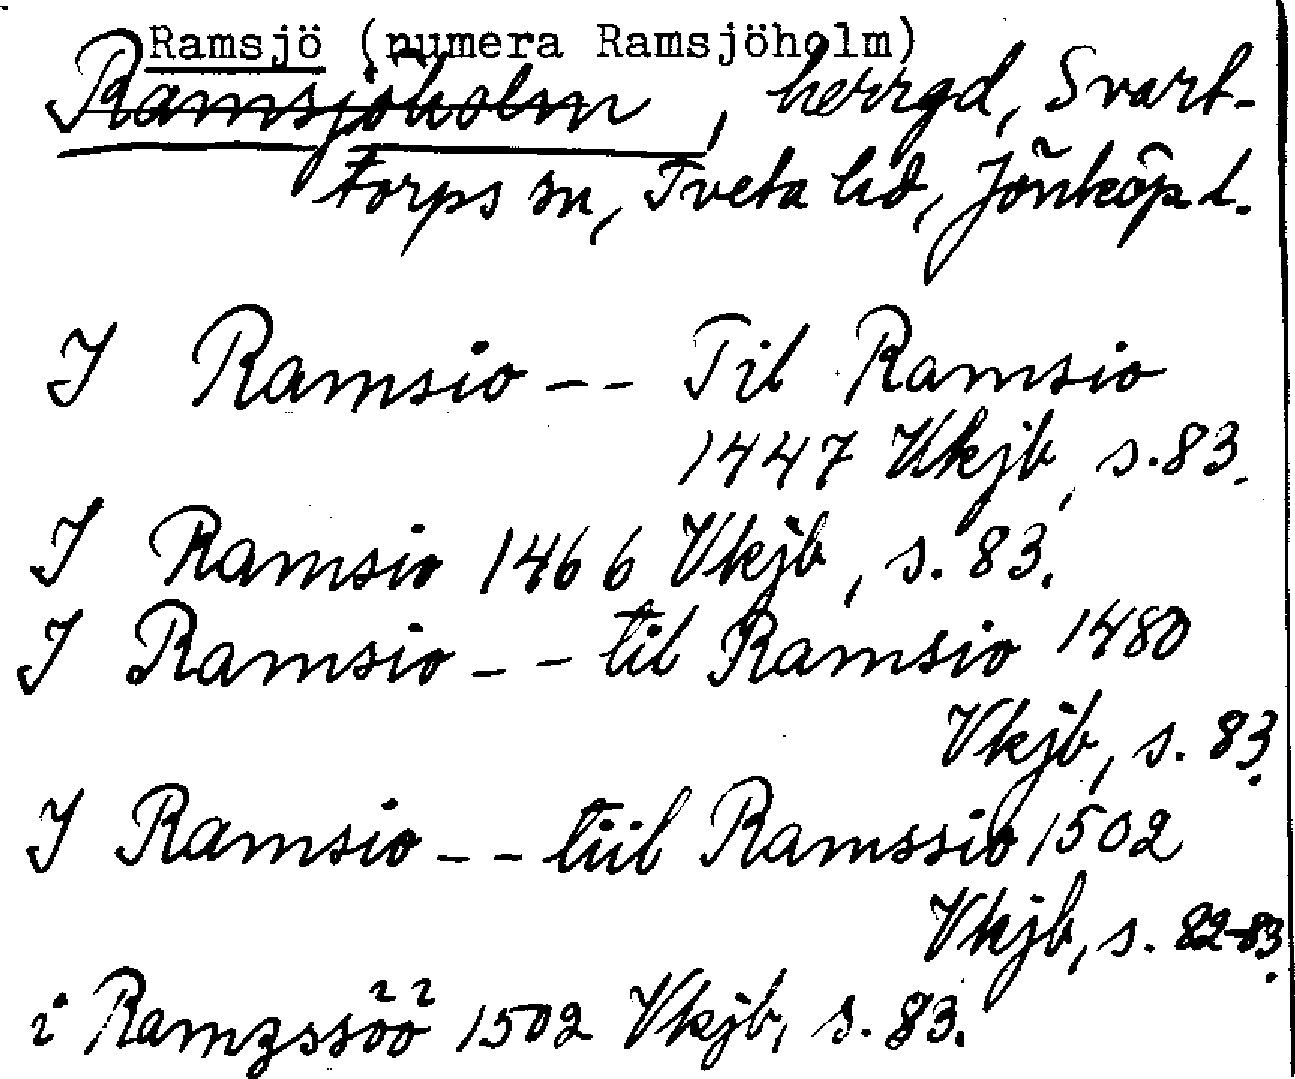 Ramsjö (numera Ramsjöholm)
Ramsjöholm, herrgd, Svart-
torps sn, Tveta hd, Jönköp. l.
I Ramsio -- Til Ramsio
1447 Vkjb, s. 83.
I Ramsio 1466 Vkjb, s. 83.
I Ramsio -- til Ramsio 1480
Vkjb, s. 83.
I Ramsio -- tiil Ramssio 1502
Vkjb, s. 82-83.
i Ramzssöö 1502 Vkjb, s. 83.